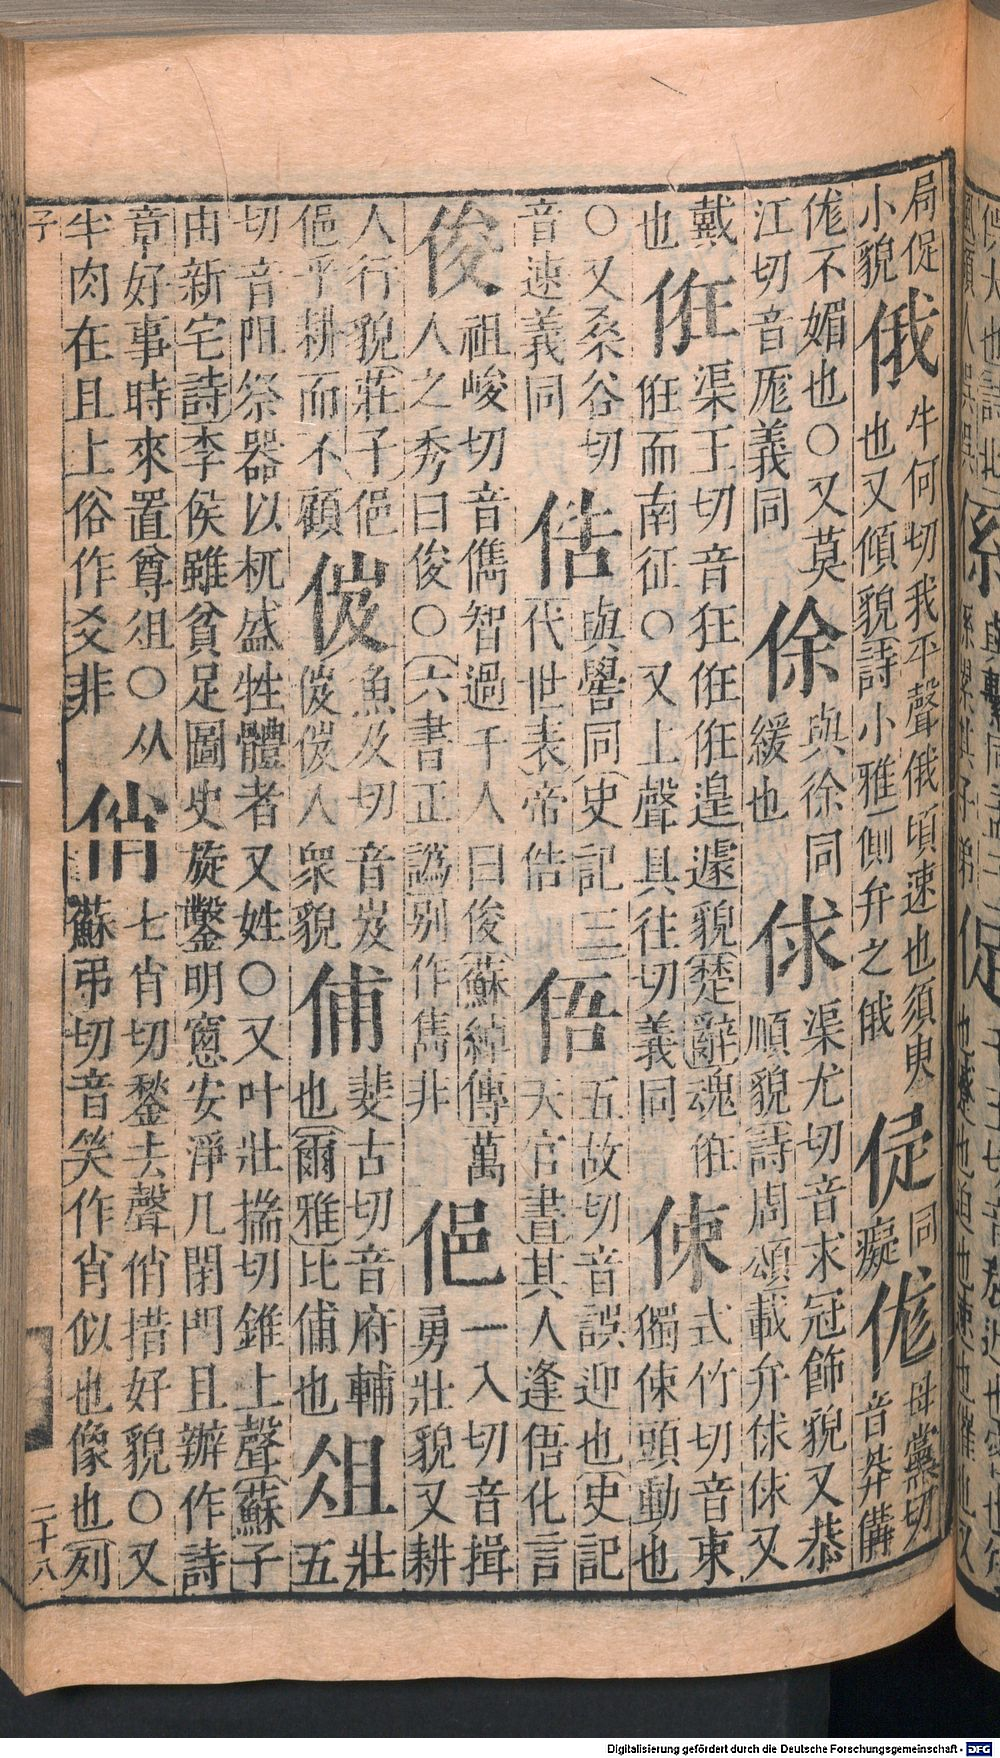 局促
小貌
俄
牛何切我平聲俄頃速也須臾
也又傾貌詩小雅側弁之俄
同
癡
母黨切
音莽
不媚也○又莫
江切音厖義同
徐
與徐同
緩也
俅
渠尤切音求冠飾貌又恭
順貌詩周頌載弁俅俅又
戴
也
俇
渠王切音狂俇俇遑遽貌楚辭魂俇
俇而南征○又上聲具往切義同
㑛
式竹切音束
獨㑛頭動也
○又桑谷切
音速義同
俈
與嚳同史記三
代世表帝俈
俉
五故切音誤迎也史記
天官書其人逢俉化言
俊
祖峻切音儁智過千人曰俊蘇綽傳萬
人之秀曰俊○六書正譌别作雋非
俋
一入切音揖
勇壯貌又耕
人行貌莊子俋
俋乎耕而不顧
魚及切音岌
人衆貌
俌
斐古切音府輔
也爾雅比俌也
俎
壯
五
切音阻祭器以杌盛牲體者又姓○又叶壯揣切錐上聲蘇子
由新宅詩李侯雖貧足圖史旋鑿明窻安淨几閉門且辦作詩
章好事時來置尊俎○从
半肉在且上俗作爻非
俏
七肖切鍫去聲俏措好貌○又
蘇弔切音笑作肖似也像也列
子
二十八
Digitalisierung gefördert durch die Deutsche Forschungsgemeinschaft - DFG